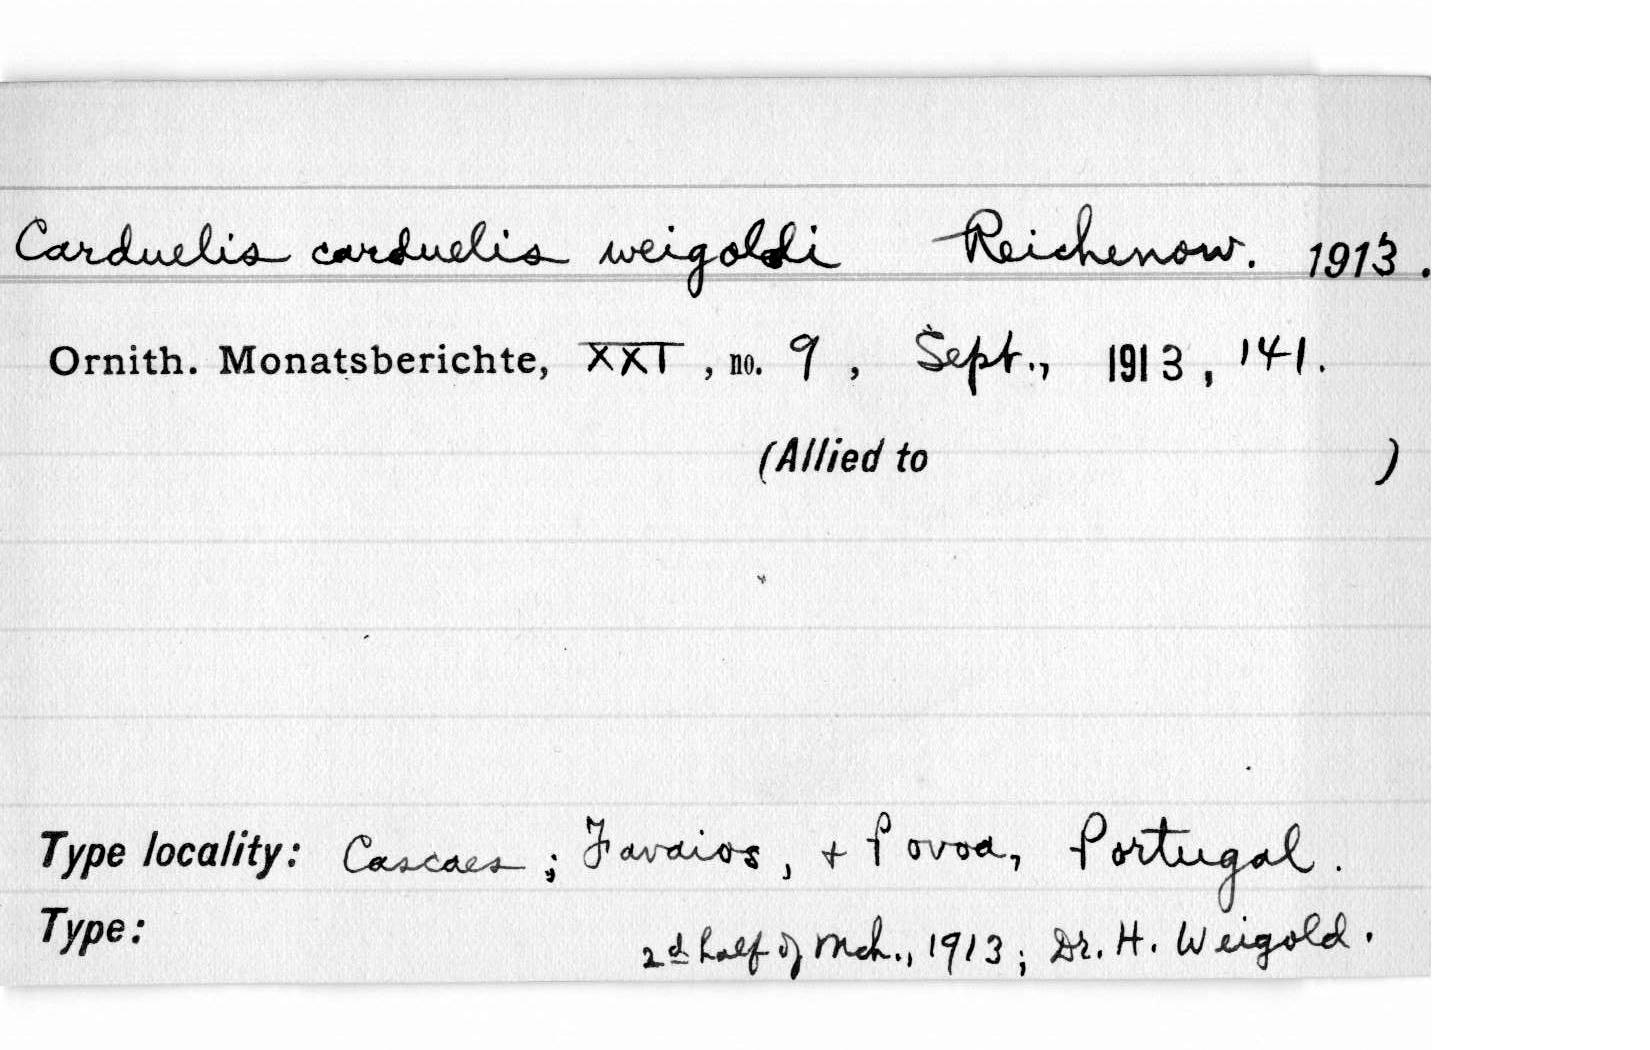 Carduelis carduelis weigoldi Reichenow. 1913.
Ornith. Monatsberichte, XXI, no. 9, Sept., 1913, 141.
(Allied to )
Type locality: Cascaes; Favaios, + Povoa, Portugal.
Type: 2d half of Mch., 1913; Dr. H. Weigold.